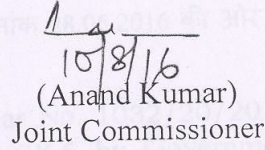 10/8/16
(Anand Kumar)
Joint Commissioner